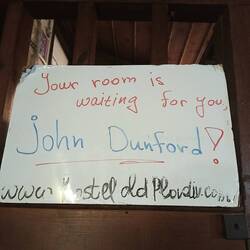 Your room is
waiting for you,
John Dunford!
www.hostel old Plovdiv.com